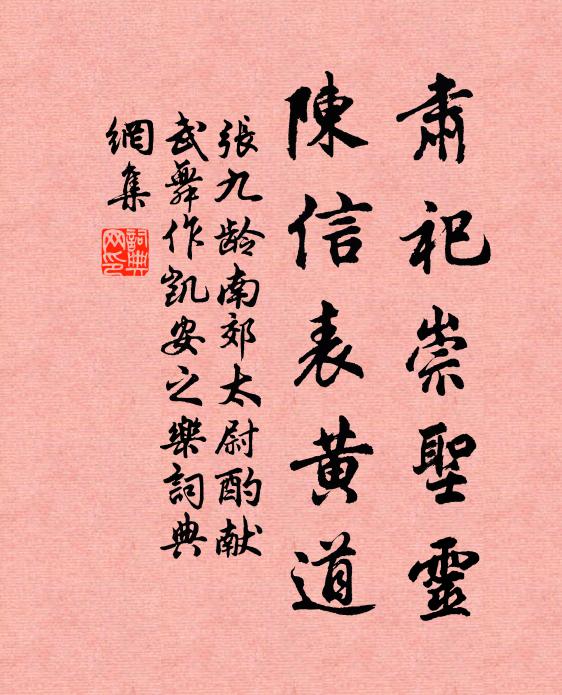 肅祀崇聖靈
陳信表黃道
張九龄南郊太尉酌献
武舞作凱安之樂詞典
網集
詞典
网印